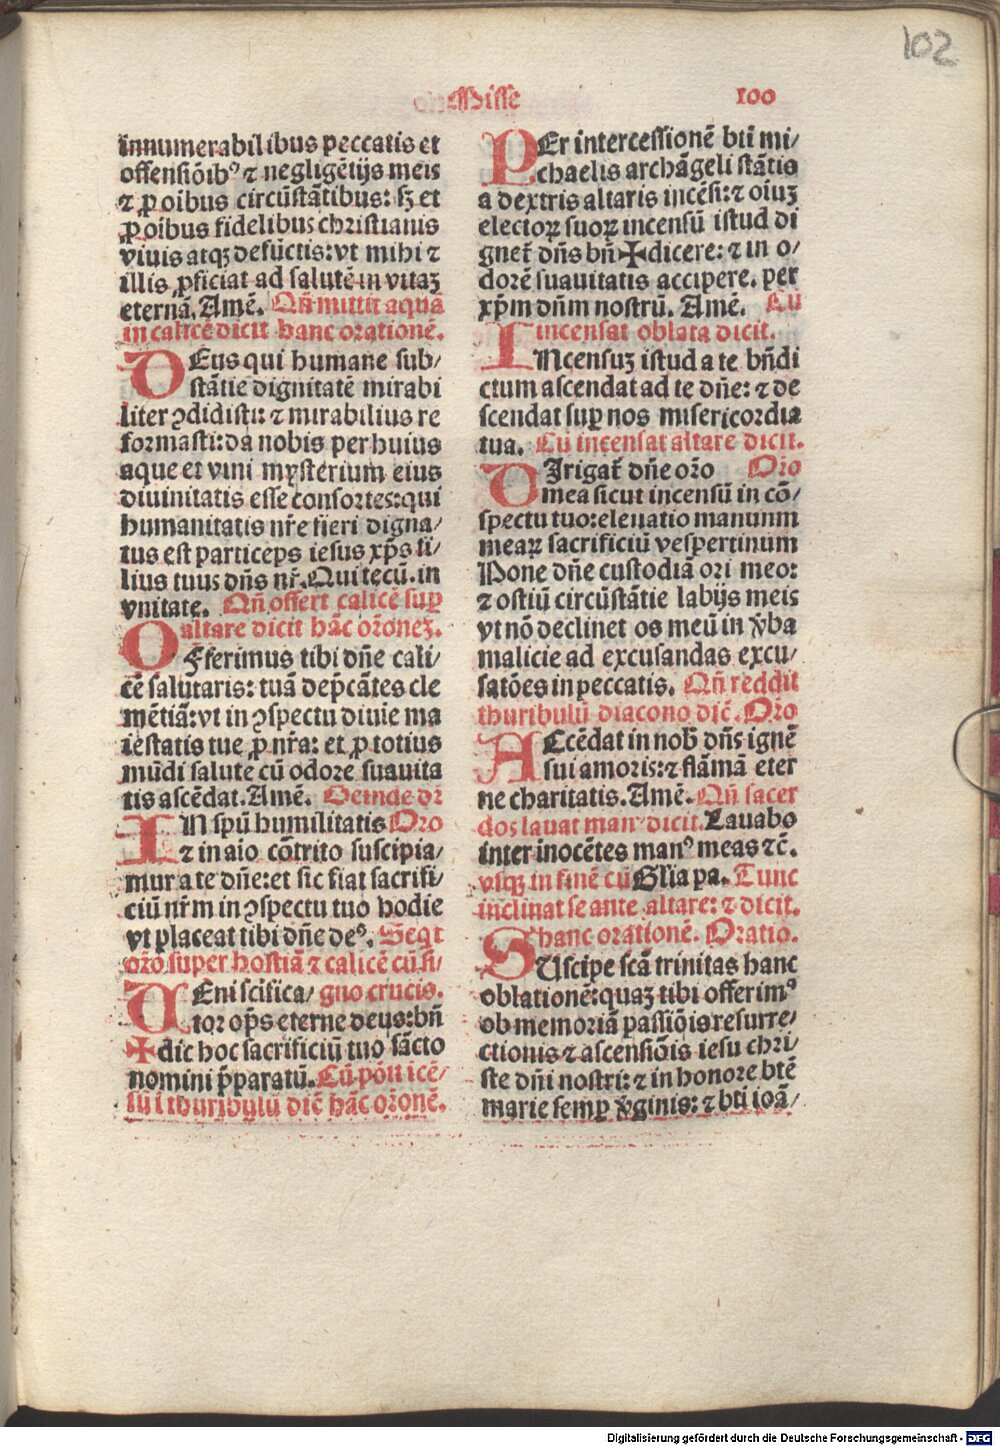 102
Misse
100
innumerabilibus peccatis et
offensiōibꝰ ⁊ negligētijs meis
⁊ ꝓ oibus circūstātibus: sꝫ et
ꝓ oibus fidelibus christianis
viuis atqꝫ defūctis: vt mihi ⁊
illis ꝓficiat ad salutē in vitaꝫ
eternā. Amē. Qñ mittit aquā
in calicē dicit hanc orationē.
DEus qui humane sub/
stātie dignitatē mirabi
liter ↄdidisti: ⁊ mirabilius re
formasti: da nobis per huius
aque et vini mysterium eius
diuinitatis esse consortes: qui
humanitatis nr̄e fieri digna/
tus est particeps iesus xp̄s fi/
lius tuus dn̄s nr̄. Qui tecū. in
vnitate. Qñ offert calicē suꝑ
altare dicit hāc or̄oneꝫ.
OFferimus tibi dn̄e cali/
cē salutaris: tuā dep̄cātes cle
mētiā: vt in ↄspectu diuie ma
iestatis tue ꝓ nr̄a: et ꝓ totius
mūdi salute cū odore suauita
tis ascēdat. Amē. Deinde dr̄
IN spū humilitatis Oro
⁊ in aio cōtrito suscipia/
mur a te dn̄e: et sic fiat sacrifi/
ciū nr̄m in ↄspectu tuo hodie
vt placeat tibi dn̄e deꝰ. Seqt
or̄o super hostiā ⁊ calicē cū si/
VEni scifica/ gno crucis.
tor op̄s eterne deus: bn̄
✠dic hoc sacrificiū tuo sācto
nomini p̄paratū. Cū pōit icē/
sū i thuribulū dic̄ hāc or̄onē.
PEr intercessionē bti mi/
chaelis archāgeli stātis
a dextris altaris incēsi: ⁊ oiuꝫ
electoꝝ suoꝝ incensū istud di
gnet̄ dn̄s bn̄✠dicere: ⁊ in o/
dorē suauitatis accipere. per
xp̄m dn̄m nostrū. Amē. Cū
incensat oblata dicit.
INcensuꝫ istud a te bn̄di
ctum ascendat ad te dn̄e: ⁊ de
scendat suꝑ nos misericordia
tua. Cū incensat altare dicit.
DIrigat̄ dn̄e or̄o Or̄o
mea sicut incensū in cō/
spectu tuo: eleuatio manunm
meaꝝ sacrificiū vespertinum
Pone dn̄e custodiā ori meo:
⁊ ostiū circūstātie labijs meis
vt nō declinet os meū in v̄ba
malicie ad excusandas excu/
satōes in peccatis. Qñ reddit
thuribulū diacono dic̄. Or̄o
ACcēdat in nob̄ dn̄s ignē
sui amoris: ⁊ flāmā eter
ne charitatis. Amē. Qñ sacer
dos lauat man̄ dicit. Lauabo
inter inocētes manꝰ meas ⁊c̄.
vsqꝫ in finē cū Glia pa. Tunc
inclinat se ante altare: ⁊ dicit.
hanc orationē. Oratio.
SUscipe scā trinitas hanc
oblationē: quaꝫ tibi offerimꝰ
ob memoriā passiōis resurre/
ctionis ⁊ ascensiōis iesu chri/
ste dn̄i nostri: ⁊ in honore btē
marie semꝑ v̄ginis: ⁊ bti ioā/
Digitalisierung gefördert durch die Deutsche Forschungsgemeinschaft - DFG